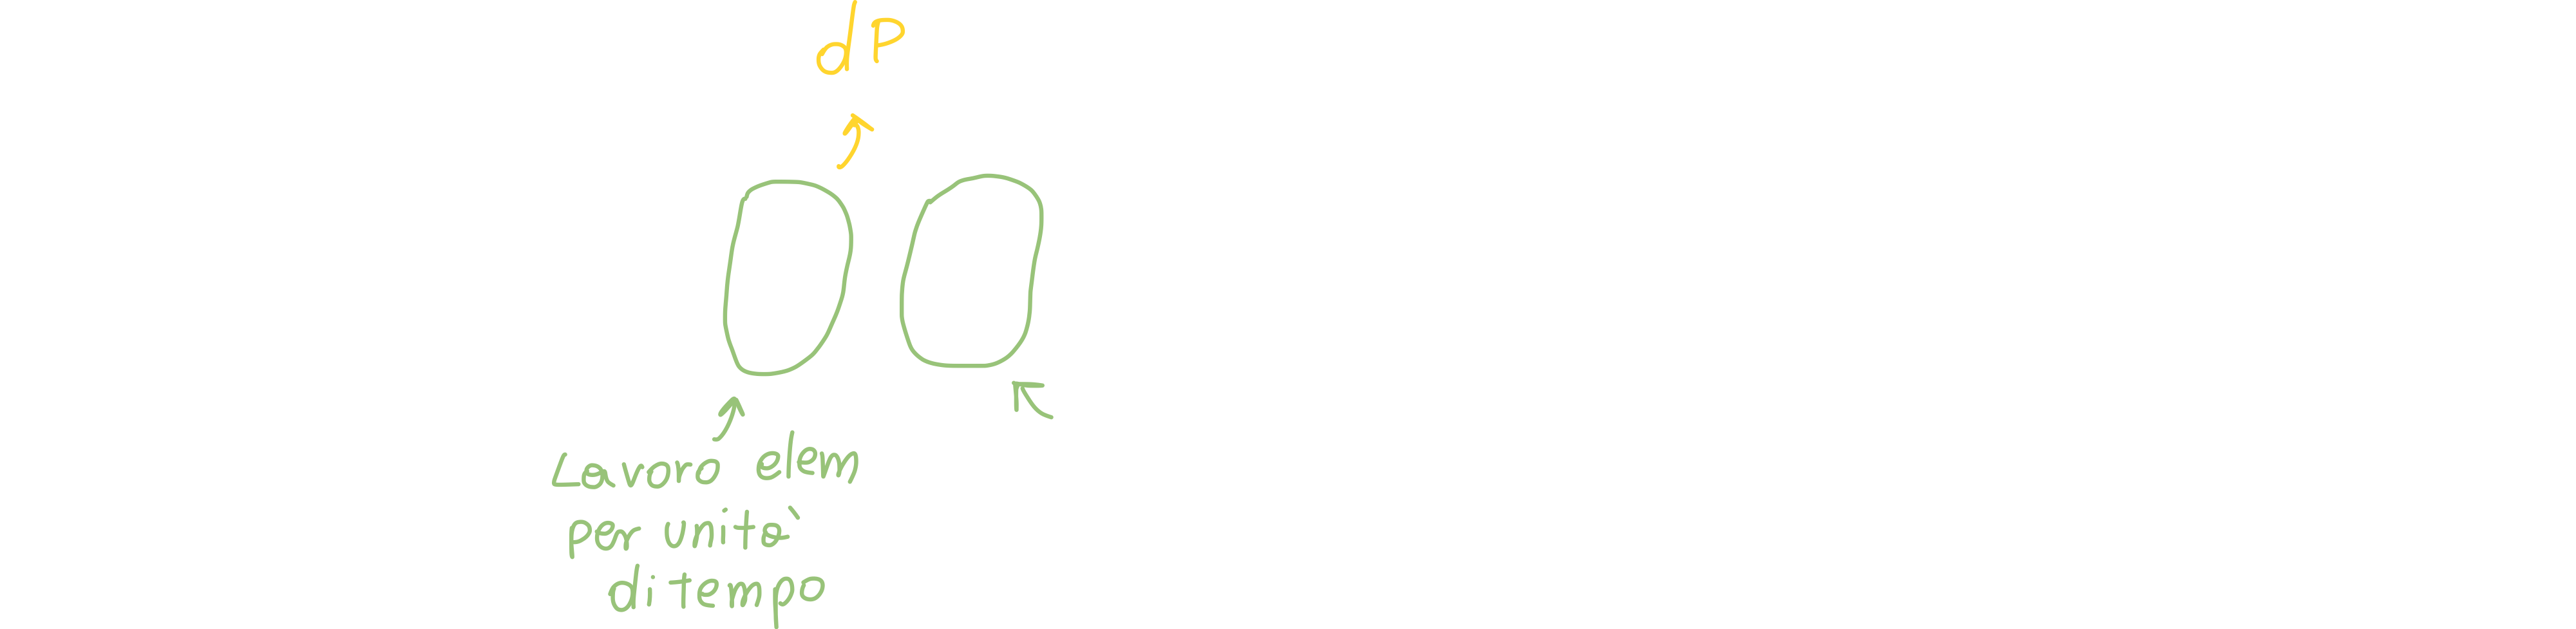 dP
Lavoro elem
per unità
di tempo